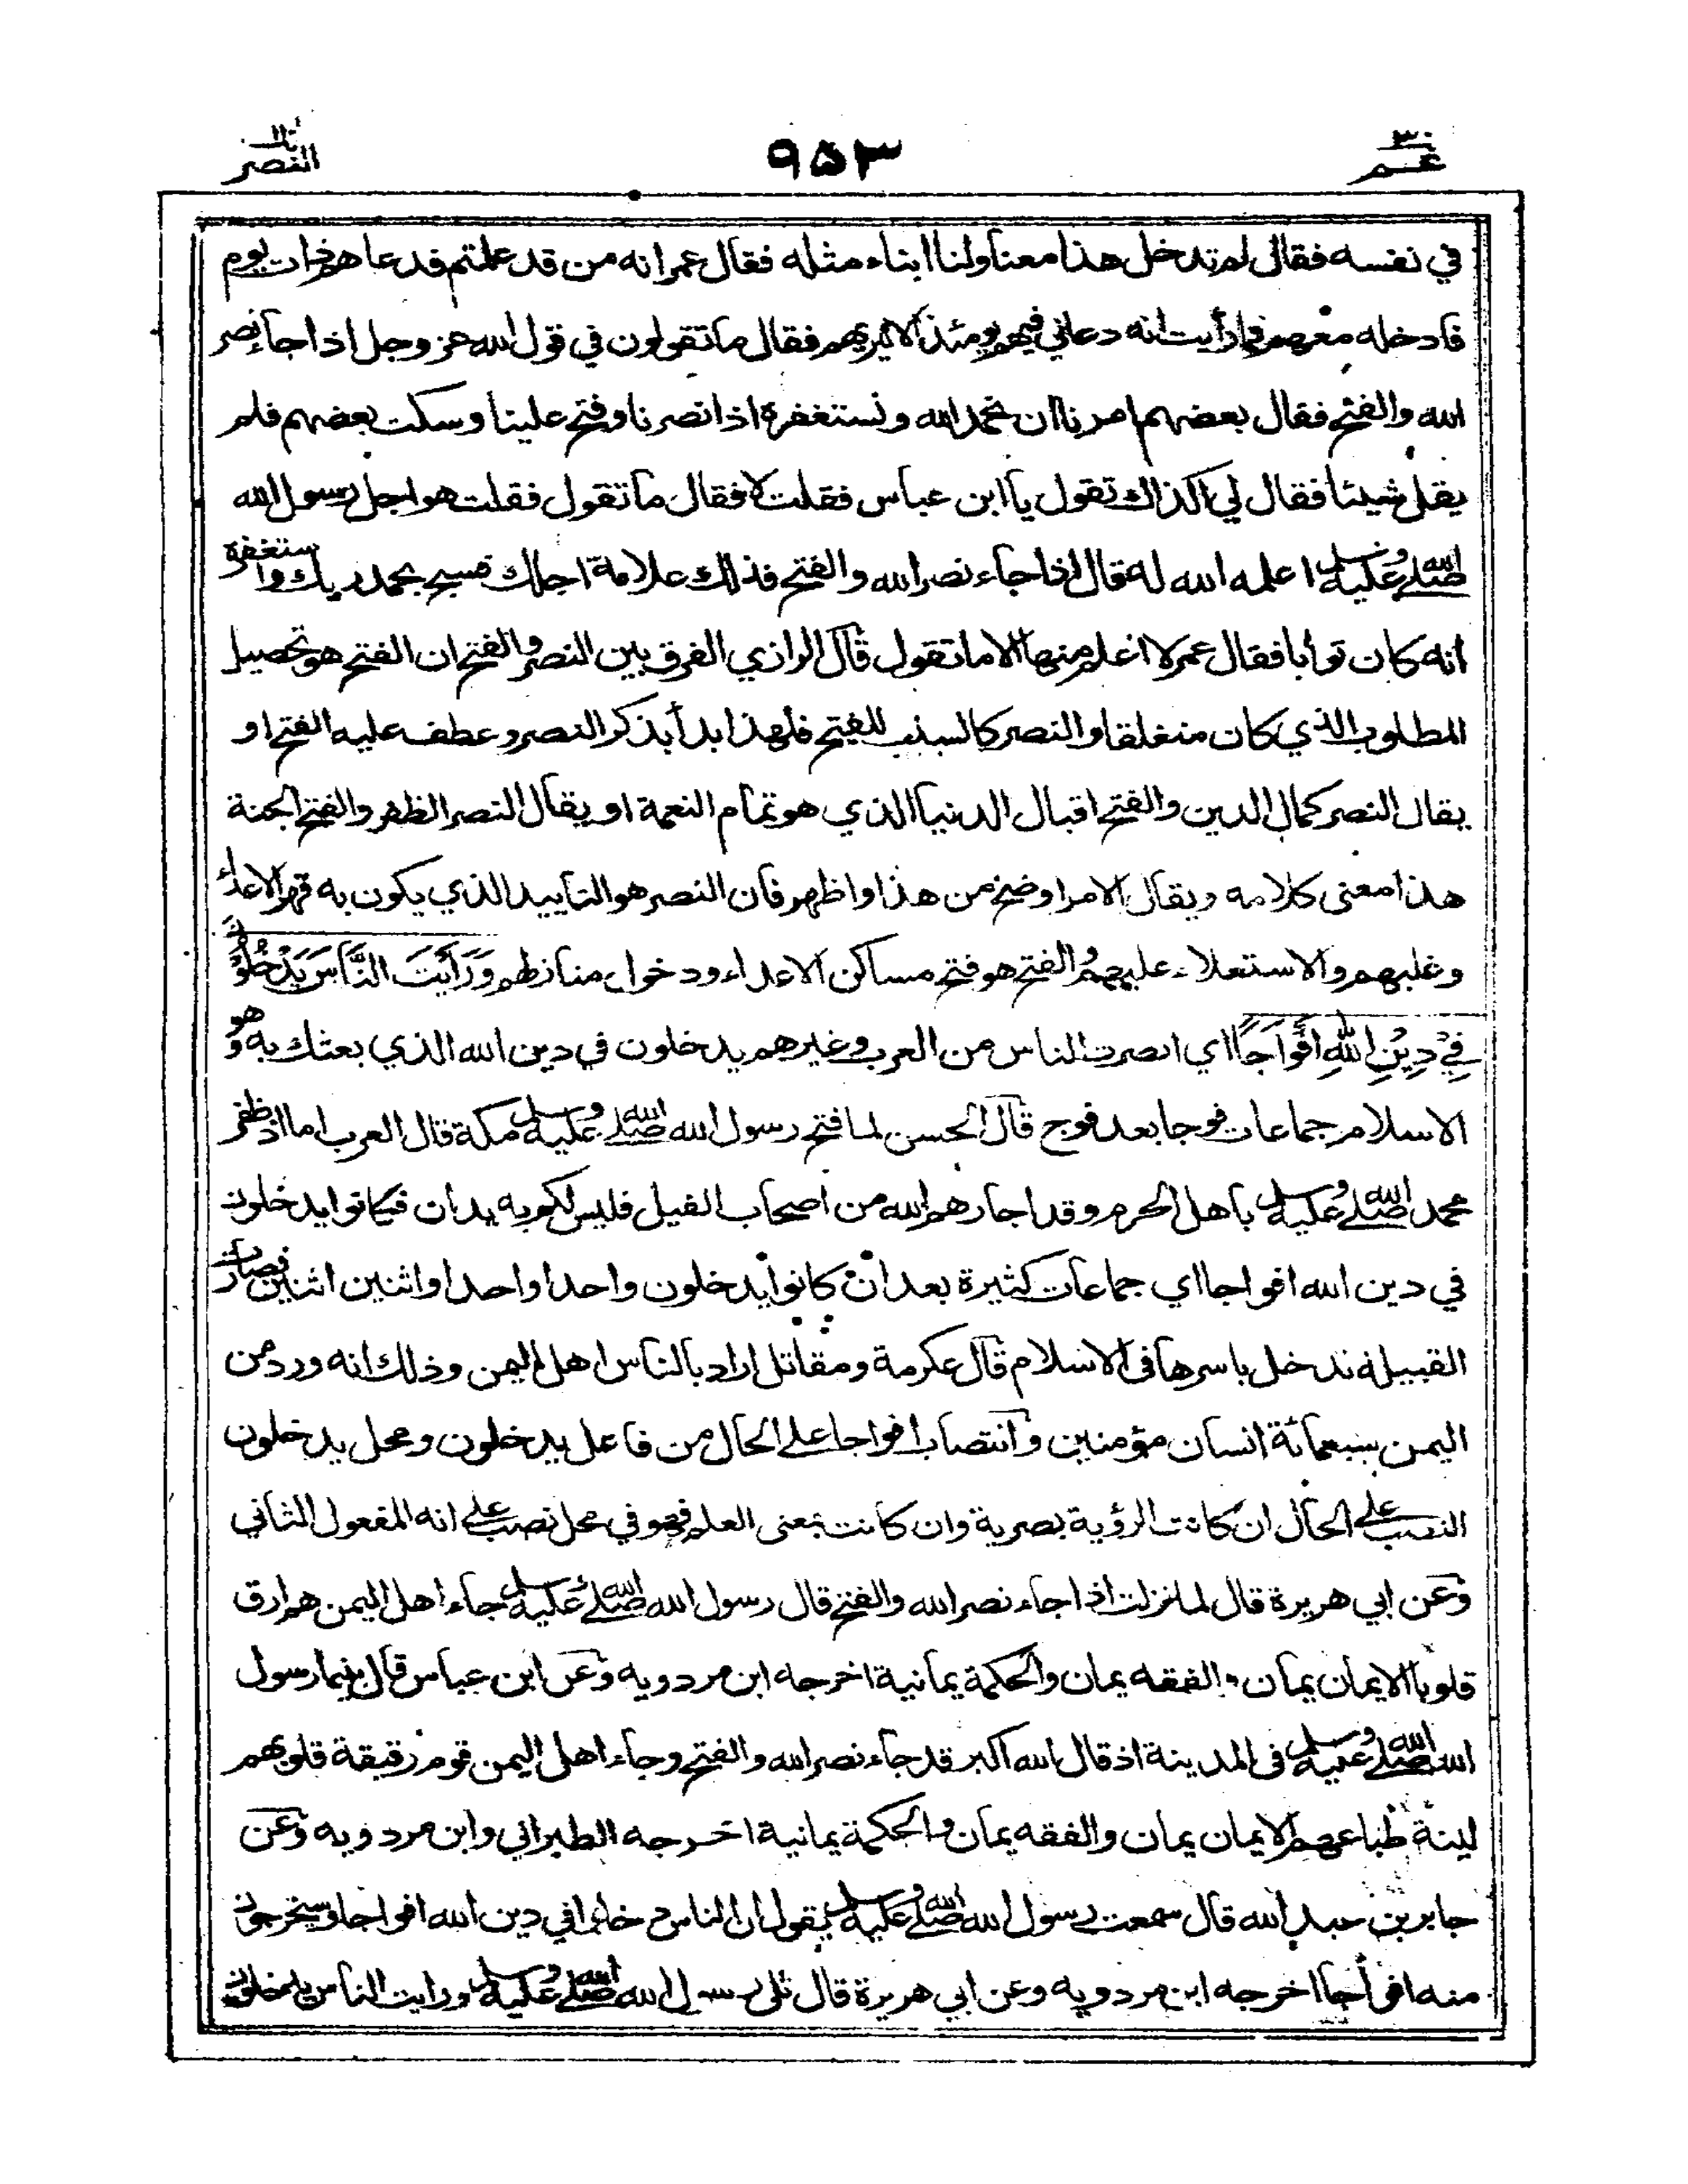 عم ٣٠
٩٥٣
النصر
في نفسه فقال لم تدخل هذا معنا ولنا ابناء مثله فقال عمر انه من قد علمتم فدعاهم ذات يوم
فادخله معهم فما رأيت انه دعاني فيهم يومئذ الا ليريهم فقال ما تقولون في قول الله عز وجل اذا جاء نصر
الله والفتح فقال بعضهم امرنا ان نحمد الله ونستغفره اذا نصرنا وفتح علينا وسكت بعضهم فلم
يقل شيئا فقال لي اكذاك تقول يا ابن عباس فقلت لا فقال ما تقول فقلت هو اجل رسول الله
صلى الله عليه وسلم اعلمه الله له قال اذا جاء نصر الله والفتح فذلك علامة اجلك فسبح بحمد ربك واستغفره
انه كان توابا فقال عمر لا اعلم منها الا ما تقول قال الرازي الفرق بين النصر والفتح ان الفتح هو تحصيل
المطلوب الذي كان منغلقا والنصر كالسبب للفتح فلهذا بدأ بذكر النصر وعطف عليه الفتح او
يقال النصر كمال الدين والفتح اقبال الدنيا الذي هو تمام النعمة او يقال النصر الظفر والفتح الجنة
هذا معنى كلامه ويقال الامر اوضح من هذا واظهر فان النصر هو التاييد الذي يكون به قهر الاعداء
وغلبهم والاستعلاء عليهم والفتح هو فتح مساكن الاعداء ودخول منازلهم وَرَأَيْتَ النَّاسَ يَدْخُلُوْنَ
فِيْ دِيْنِ اللّٰهِ اَفْوَاجًا اي ابصرت الناس من العرب وغيرهم يدخلون في دين الله الذي بعثك به وهو
الاسلام جماعات فوجا بعد فوج قال الحسن لما فتح رسول الله صلى الله عليه وسلم مكة قال العرب اما اذ ظفر
محمد صلى الله عليه وسلم باهل الحرم وقد اجارهم الله من اصحاب الفيل فليس لكم به يدان فكانوا يدخلون
في دين الله افواجا اي جماعات كثيرة بعد ان كانوا يدخلون واحدا واحدا واثنين اثنين فصارت
القبيلة تدخل باسرها فى الاسلام قال عكرمة ومقاتل اراد بالناس اهل اليمن وذلك انه ورد من
اليمن سبعمائة انسان مؤمنين وانتصاب افواجا على الحال من فاعل يدخلون ومحل يدخلون
النصب على الحال ان كانت الرؤية بصرية وان كانت بمعنى العلم فهو في محل نصب على انه المفعول الثاني
وعن ابي هريرة قال لما نزلت اذا جاء نصر الله والفتح قال رسول الله صلى الله عليه وسلم جاء اهل اليمن هم ارق
قلوبا الايمان يمان والفقه يمان والحكمة يمانية اخرجه ابن مردويه وعن ابن عباس قال بينما رسول
الله صلى الله عليه وسلم فى المدينة اذ قال الله اكبر قد جاء نصر الله والفتح وجاء اهل اليمن قوم رقيقة قلوبهم
لينة طباعهم الايمان يمان والفقه يمان والحكمة يمانية اخرجه الطبراني وابن مردويه وعن
جابر بن عبد الله قال سمعت رسول الله صلى الله عليه وسلم يقول ان الناس دخلوا في دين الله افواجا وسيخرجون
منه افواجا اخرجه ابن مردويه وعن ابي هريرة قال تلى رسول الله صلى الله عليه وسلم ورايت الناس يدخلون